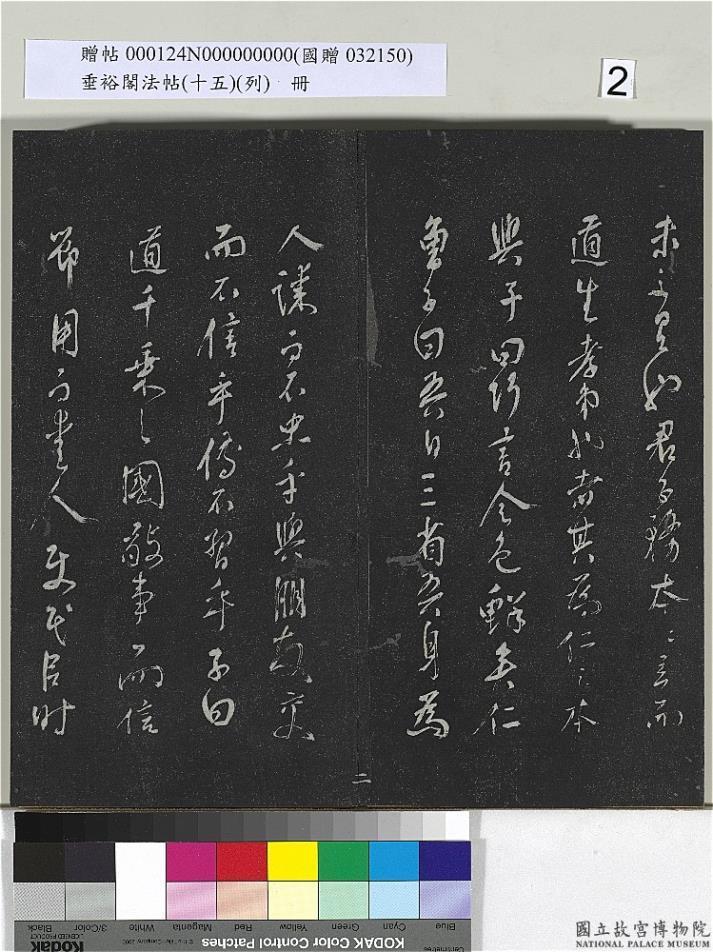 贈帖 000124N000000000(國贈 032150)
垂裕閣法帖(十五)(列) 冊
2
未之有也君子務本〻立而
道生孝弟也者其為仁之本
與子曰巧言令色鮮矣仁
曾子曰吾日三省吾身為
人謀而不忠乎與朋友交
而不信乎傳不習乎子曰
道千乘之國敬事而信
節用而愛人使民以時
二
Blue Cyan Green Yellow Red Magenta White 3/Color Black
KODAK Color Control Patches
Kodak
國立故宮博物院
NATIONAL PALACE MUSEUM